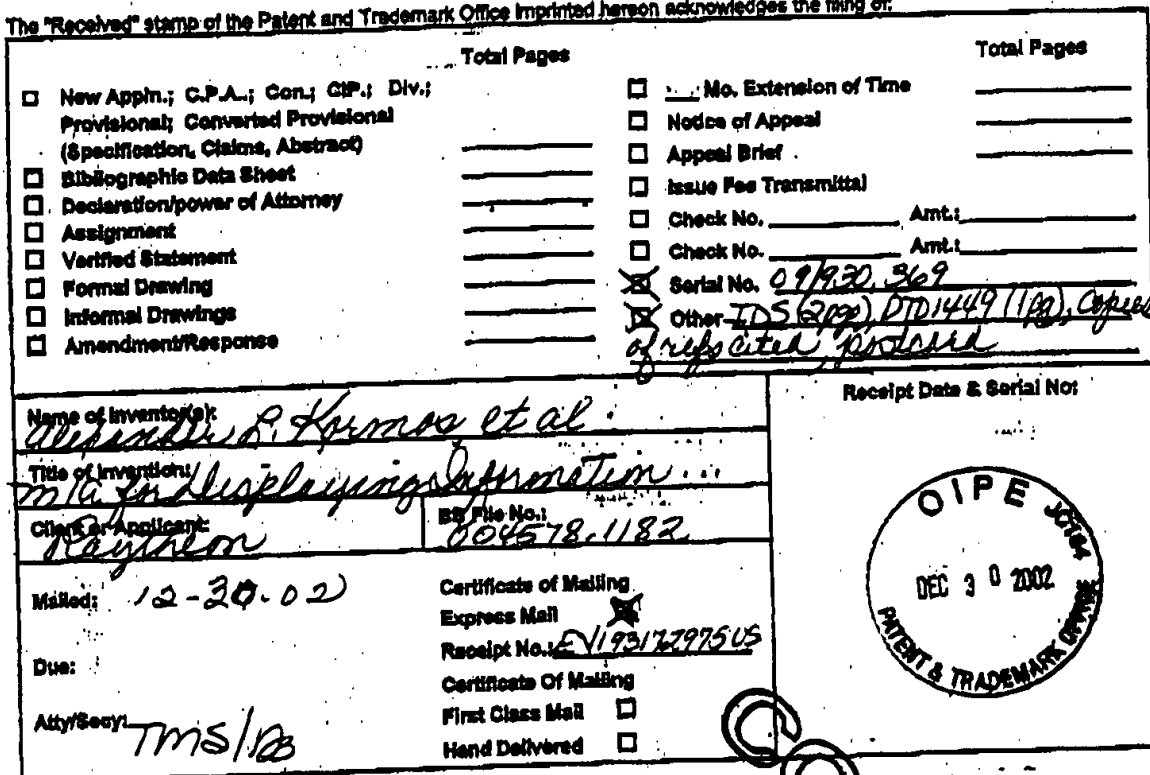 The "Received" stamp of the Patent and Trademark Office imprinted hereon acknowledges the filing of:
Total Pages
New Appln.; C.P.A.; Con.; CIP.; Div.;
Provisional; Converted Provisional
(Specification, Claims, Abstract)
Bibliographic Data Sheet
Declaration/power of Attorney
Assignment
Verified Statement
Formal Drawing
Informal Drawings
Amendment/Response
Total Pages
Mo. Extension of Time
Notice of Appeal
Appeal Brief
Issue Fee Transmittal
Check No. Amt.:
Check No. Amt.:
Serial No. 09/930,369
Other IDS (2pgs), PTO1449 (1pg), Copies
of refs cited, postcard
Name of Inventor(s):
Alexander L. Kormos et al
Title of Invention:
M/A for Displaying Information
Client or Applicant:
Raytheon
BB File No.:
004578.1182
Mailed: 12-30-02
Due:
Atty/Secy: TMS/
Certificate of Mailing
Express Mail
Receipt No.: EV193172975US
Certificate Of Mailing
First Class Mail
Hand Delivered
Receipt Date & Serial No:
OIPE
DEC 30 2002
PATENT & TRADEMARK OFFICE